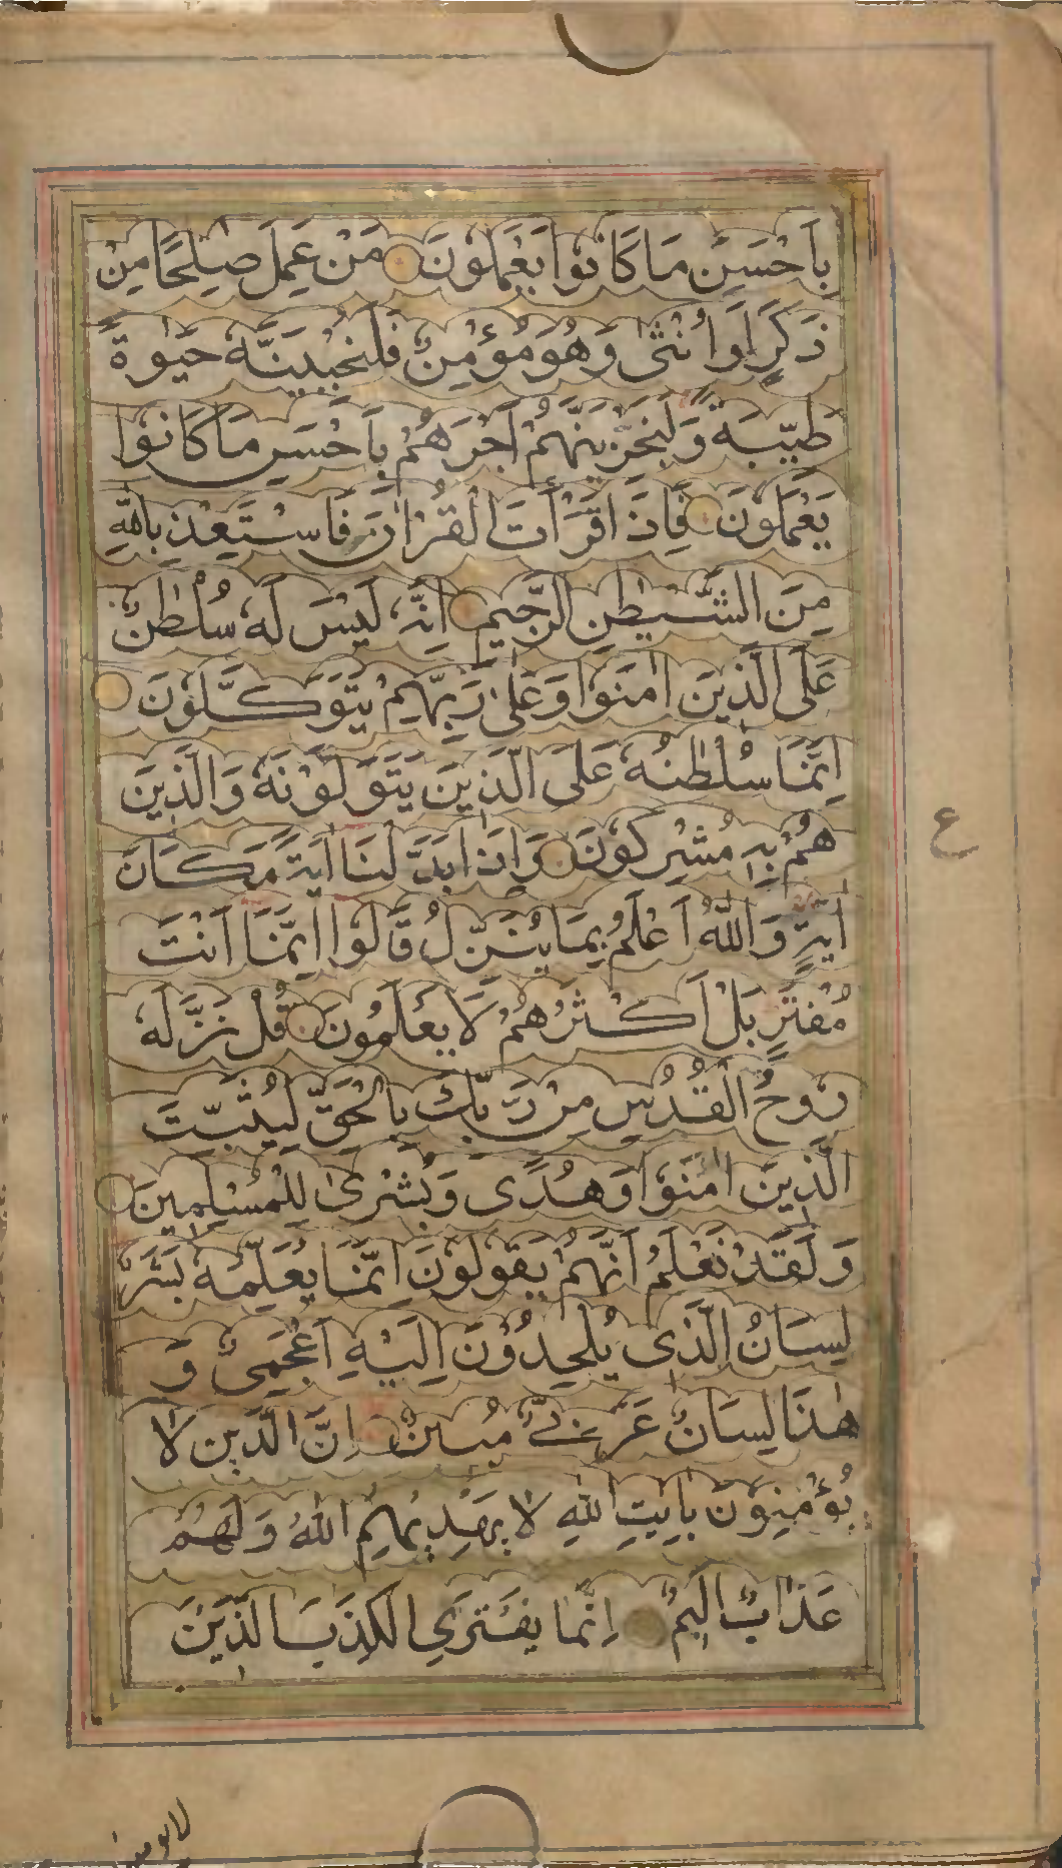 بِاَحْسَنِ مَا كَانُوْا يَعْمَلُوْنَ مَنْ عَمِلَ صٰلِحًا مِنْ
ذَكَرٍ اَوْ اُنْثٰى وَهُوَ مُؤْمِنٌ فَلَنُحْيِيَنَّهٗ حَيٰوةً
طَيِّبَةً وَلَنَجْزِيَنَّهُمْ اَجْرَهُمْ بِاَحْسَنِ مَا كَانُوْا
يَعْمَلُوْنَ فَاِذَا قَرَأْتَ الْقُرْاٰنَ فَاسْتَعِذْ بِاللّٰهِ
مِنَ الشَّيْطٰنِ الرَّجِيْمِ اِنَّهٗ لَيْسَ لَهٗ سُلْطٰنٌ
عَلَى الَّذِيْنَ اٰمَنُوْا وَعَلٰى رَبِّهِمْ يَتَوَكَّلُوْنَ
اِنَّمَا سُلْطٰنُهٗ عَلَى الَّذِيْنَ يَتَوَلَّوْنَهٗ وَالَّذِيْنَ
هُمْ بِهٖ مُشْرِكُوْنَ وَاِذَا بَدَّلْنَا اٰيَةً مَكَانَ
اٰيَةٍ وَاللّٰهُ اَعْلَمُ بِمَا يُنَزِّلُ قَالُوْا اِنَّمَا اَنْتَ
مُفْتَرٍ بَلْ اَكْثَرُهُمْ لَا يَعْلَمُوْنَ قُلْ نَزَّلَهٗ
رُوْحُ الْقُدُسِ مِنْ رَبِّكَ بِالْحَقِّ لِيُثَبِّتَ
الَّذِيْنَ اٰمَنُوْا وَهُدًى وَبُشْرٰى لِلْمُسْلِمِيْنَ
وَلَقَدْ نَعْلَمُ اَنَّهُمْ يَقُوْلُوْنَ اِنَّمَا يُعَلِّمُهٗ بَشَرٌ
لِسَانُ الَّذِى يُلْحِدُوْنَ اِلَيْهِ اَعْجَمِىٌّ وَ
هٰذَا لِسَانٌ عَرَبِىٌّ مُبِيْنٌ اِنَّ الَّذِيْنَ لَا
يُؤْمِنُوْنَ بِاٰيٰتِ اللّٰهِ لَا يَهْدِيْهِمُ اللّٰهُ وَلَهُمْ
عَذَابٌ اَلِيْمٌ اِنَّمَا يَفْتَرِى الْكَذِبَ الَّذِيْنَ
ع